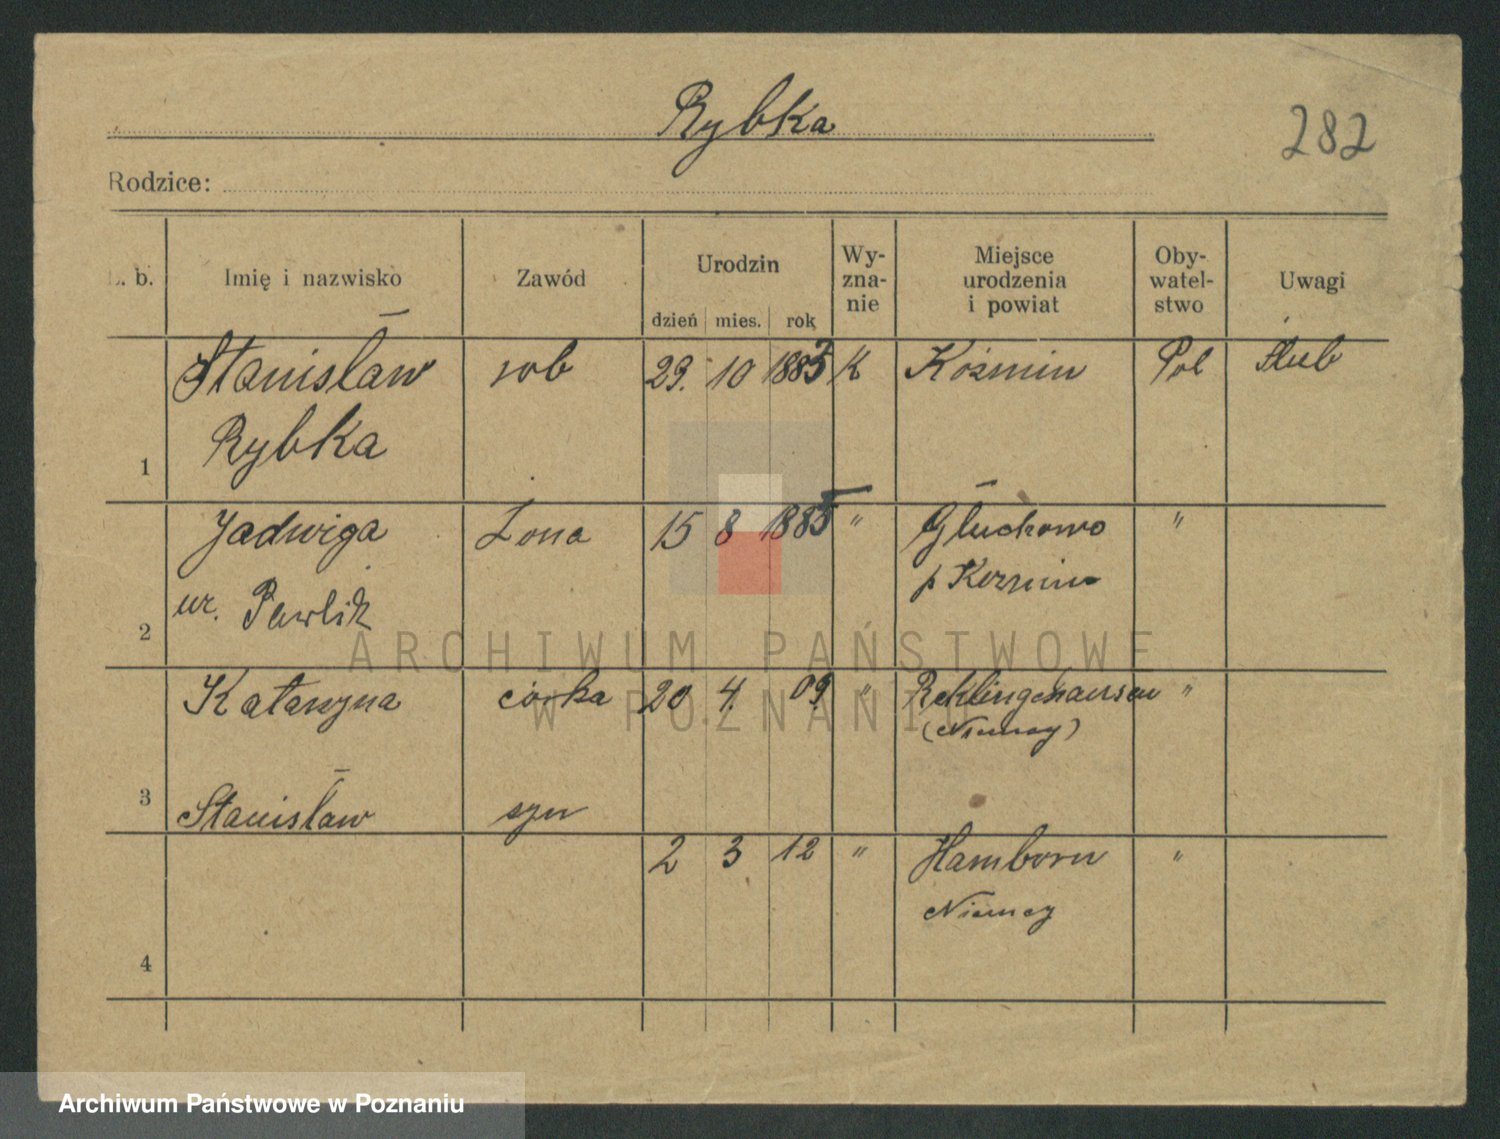 Rybka
282
Rodzice:
L. b. Imię i nazwisko Zawód Urodzin Wy-zna-nie Miejsce urodzenia i powiat Oby-watel-stwo Uwagi
dzień mies. rok
Stanisław rob 29. 10 1883 K Koźmin Pol Ślub
Rybka
1
Jadwiga Żona 15 8 1885 " Głuchowo "
ur. Pawlik p Kozmin
2
ARCHIWUM PAŃSTWOWE
W POZNANIU
Katarzyna córka 20 4. 09. " Reklingshausen "
(Niemcy)
3
Stanisław syn
2 3 12 " Hamborn "
Niemcy
4
Archiwum Państwowe w Poznaniu